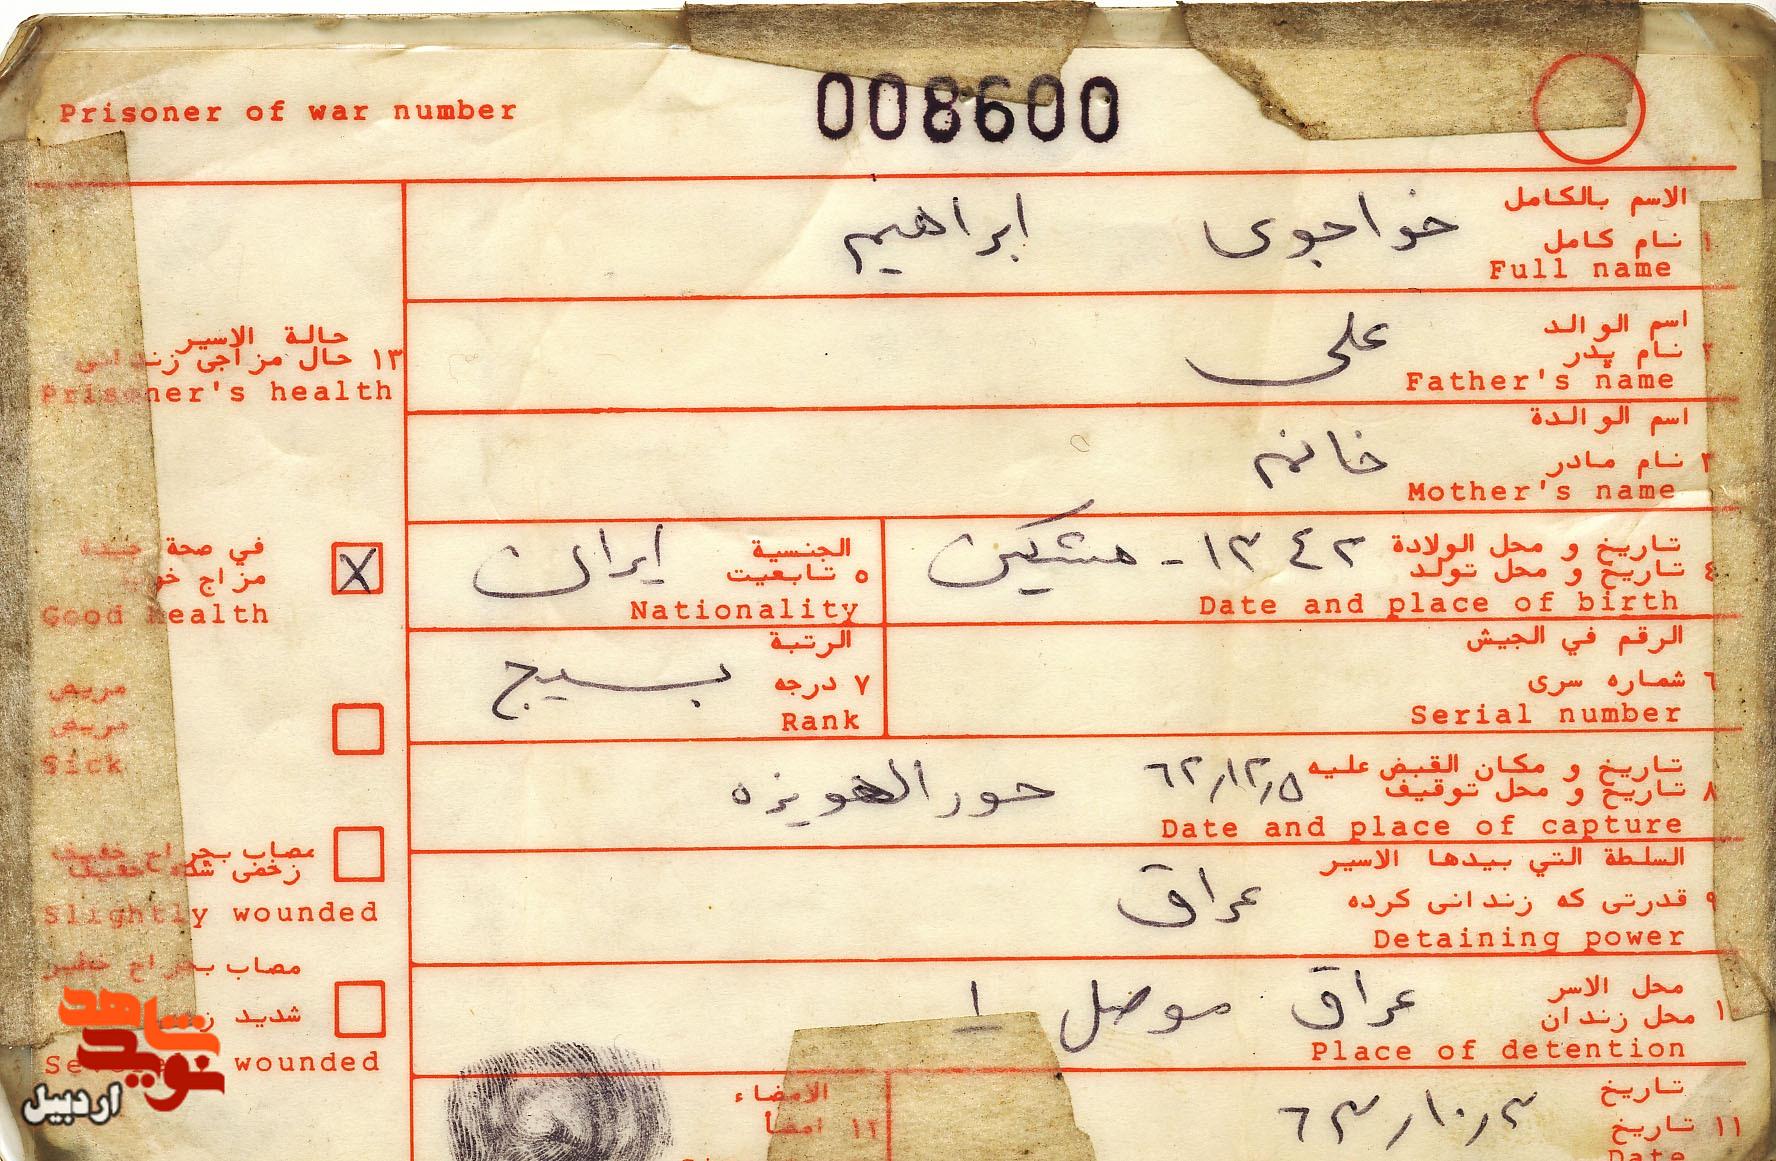 Prisoner of war number 008600
الاسم بالكامل
١ نام كامل خواجوی ابراهیم
Full name
اسم الوالد
٢ نام پدر علی
Father's name
اسم الوالدة
٣ نام مادر خانم
Mother's name
تاريخ و محل الولادة ١٣٤٢ - مشکین
٤ تاريخ و محل تولد
Date and place of birth
الجنسية
٥ تابعيت ایران
Nationality
الرقم في الجيش
٦ شماره سرى
Serial number
الرتبة
٧ درجه بسیج
Rank
تاريخ و مكان القبض عليه ٦٢/١٢/٥ حورالهویزه
٨ تاريخ و محل توقيف
Date and place of capture
السلطة التي بيدها الاسير
٩ قدرتى كه زندانى كرده عراق
Detaining power
محل الاسر عراق موصل ١
محل زندان
Place of detention
تاريخ
١١ تاريخ ٦٣/١٠/٣
Date
الامضاء
١٢ امضأ
حالة الاسير
١٣ حال مزاجى زندانى
Prisoner's health
في صحة جيدة
مزاج خوب
Good health X
مريض
مريض
Sick
مصاب بجراح خفيف
زخمى شده خفيف
Slightly wounded
مصاب بجراح خطير
شديد
wounded
نوید شاهد
اردبیل